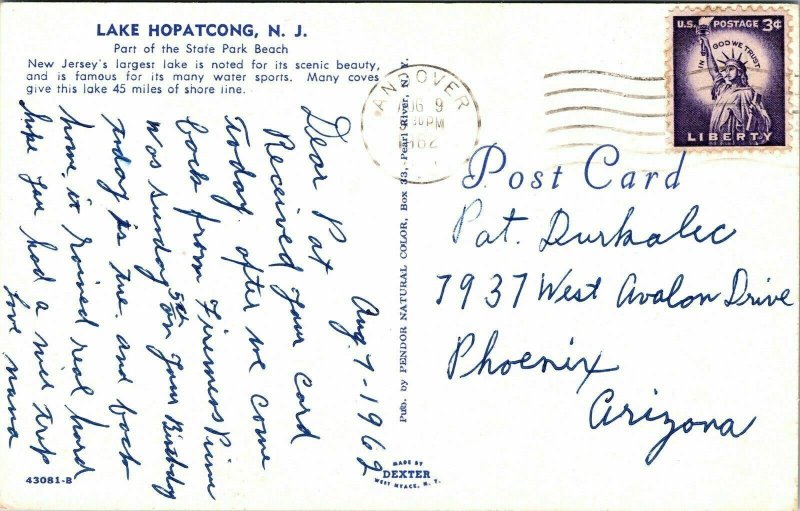 LAKE HOPATCONG, N. J.
Part of the State Park Beach
New Jersey's largest lake is noted for its scenic beauty,
and is famous for its many water sports. Many coves
give this lake 45 miles of shore line.
Aug. 7-1962
Dear Pat
Received your card
Today after we come
back from Firemens Picnic
was sunday 5th on your Birthday
today is tue. and back
home. it rained real hard
hope you had a nice trip
love nana
43081-B
Pub. by PENDOR NATURAL COLOR, Box 33, Pearl River, N. Y.
MADE BY
DEXTER
WEST NYACK, N. Y.
ANDOVER
AUG 9
PM
1962
U.S. POSTAGE 3¢
IN GOD WE TRUST
LIBERTY
Post Card
Pat. Durkalec
7937 West Avalon Drive
Phoenix
Arizona